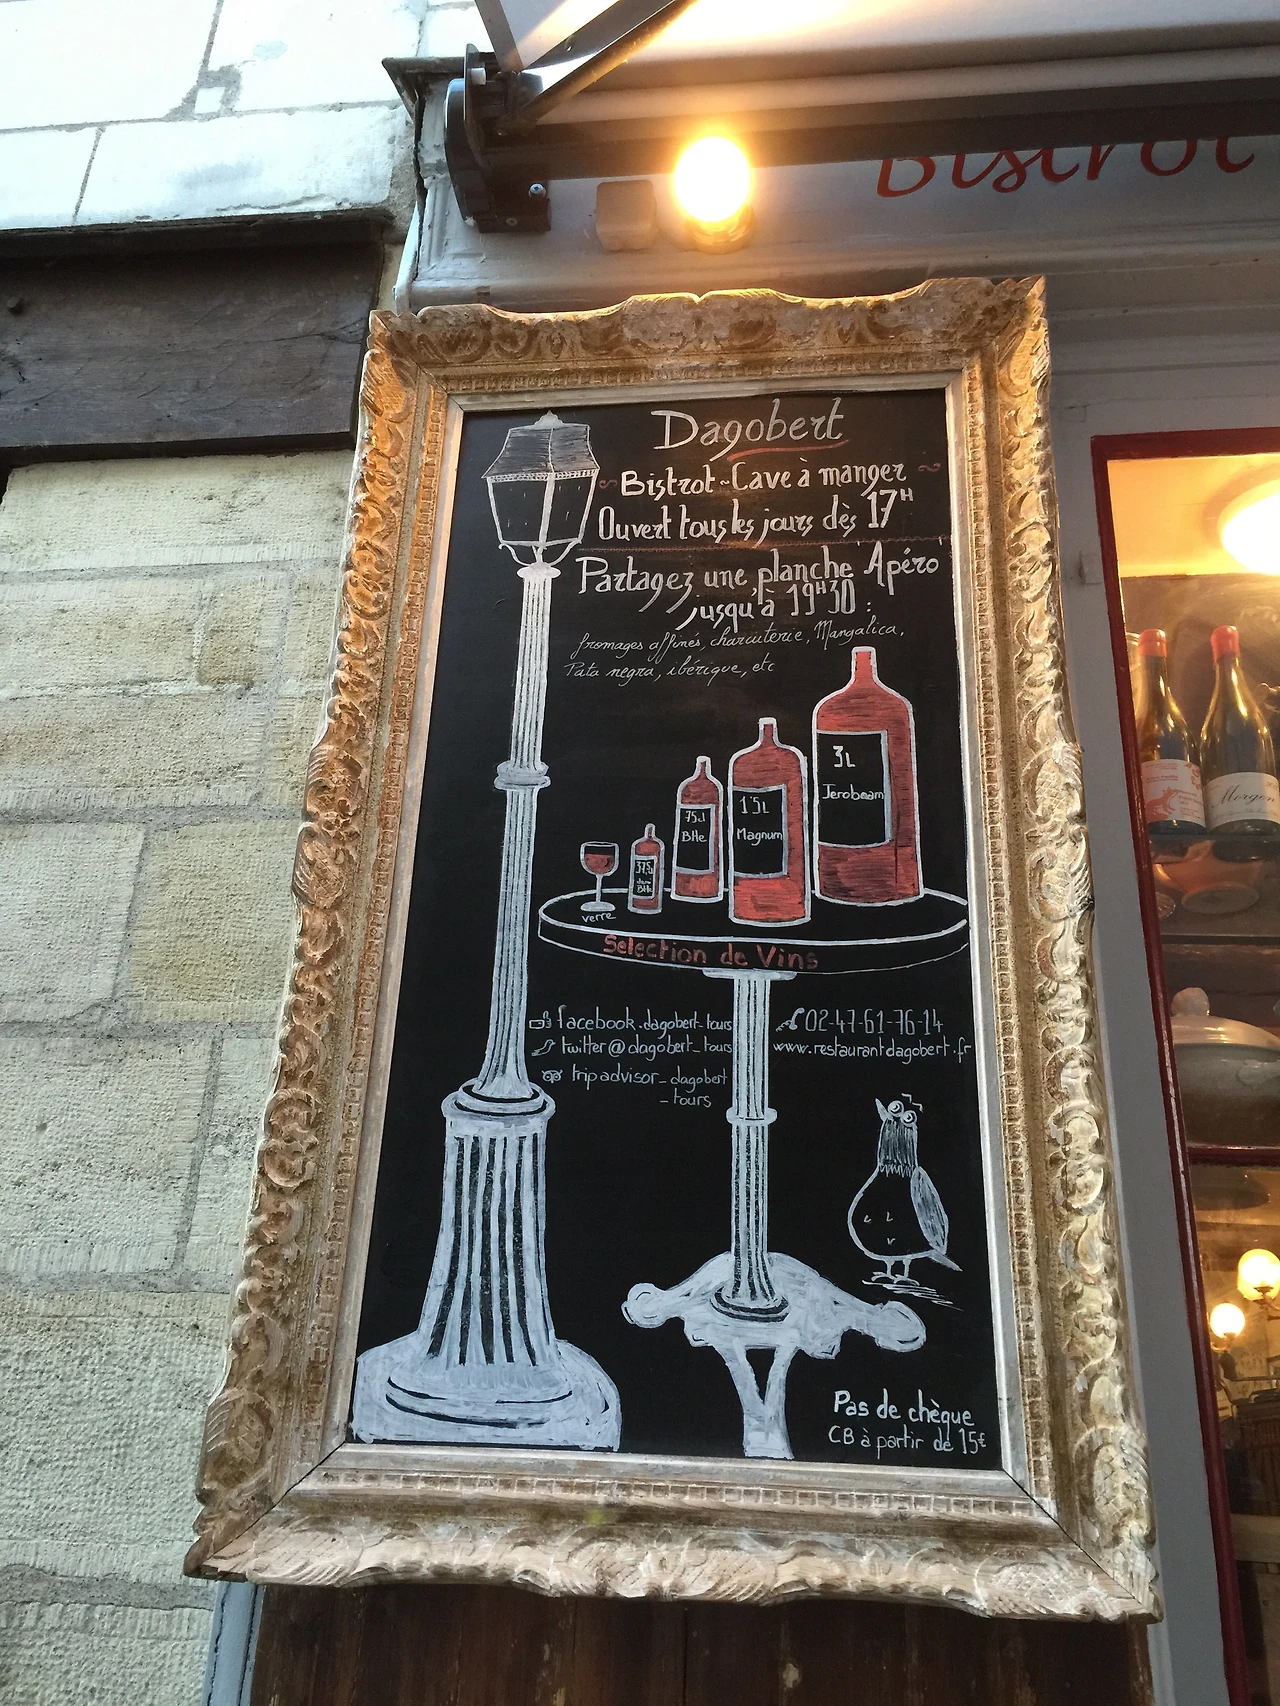 Bistrot
Dagobert
Bistrot-Cave à manger
Ouvert tous les jours dès 17H
Partagez une planche 'Apéro'
jusqu'à 19H30 :
fromages affinés, charcuterie, Mangalica,
Pata negra, ibérique, etc
3L
Jerobeam
1'5L
Magnum
75cl
Blle
37,5
Blle
verre
Selection de Vins
facebook.dagobert_tours
twitter@dagobert_tours
tripadvisor_dagobert
_tours
02-47-61-76-14
www.restaurantdagobert.fr
Pas de chèque
CB à partir de 15€
Morgon